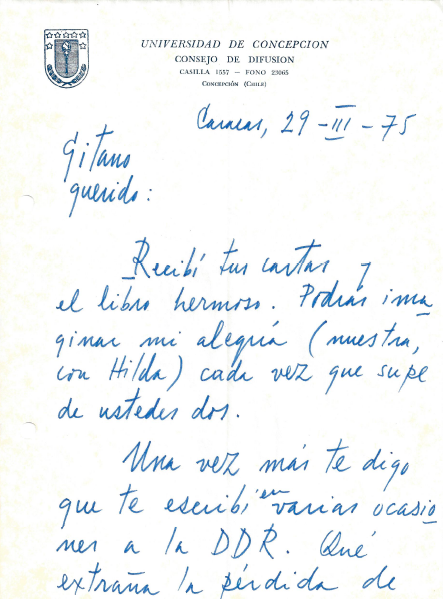 UNIVERSIDAD DE CONCEPCION
CONSEJO DE DIFUSION
CASILLA 1557 — FONO 23065
CONCEPCIÓN (CHILE)
Caracas, 29-III-75
Gitano
querido:
Recibí tus cartas y
el libro hermoso. Podrás ima
ginar mi alegría (nuestra,
con Hilda) cada vez que supe
de ustedes dos.
Una vez más te digo
que te escribí en varias ocasio
nes a la DDR. Qué
extraña la pérdida de